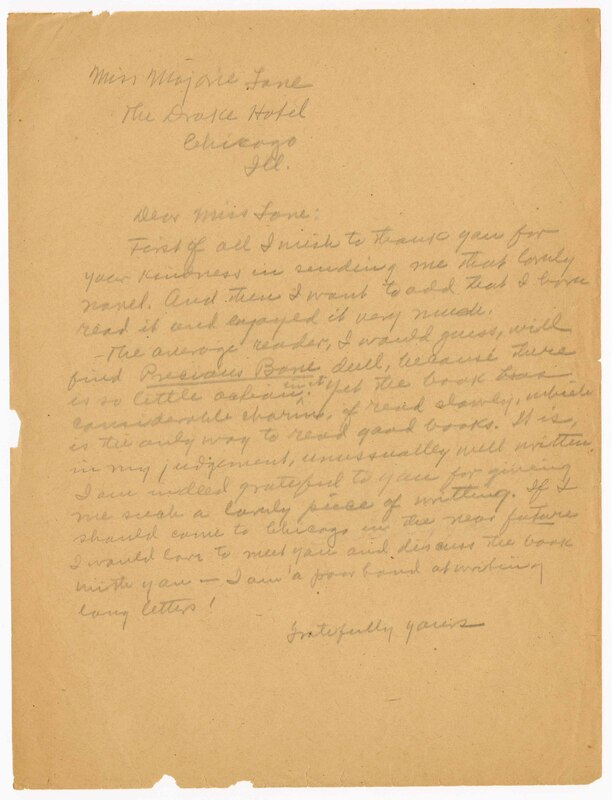 Miss Majorie Lane
The Drake Hotel
Chicago
Ill.
Dear Miss Lane:
First of all I wish to thank you for
your kindness in sending me that lovely
novel. And then I want to add that I have
read it and enjoyed it very much.
-The average reader, I would guess, will
find Precious Bane dull, because there
is so little action in it. Yet the book has
considerable charm, if read slowly, which
is the only way to read good books. It is,
in my judgement, unusually well written.
I am indeed grateful to you for giving
me such a lovely piece of writting. If I
should come to Chicago in the near future
I would love to meet you and discuss the book
with you — I am a poor hand at writing
long letters!
Gratefully yours